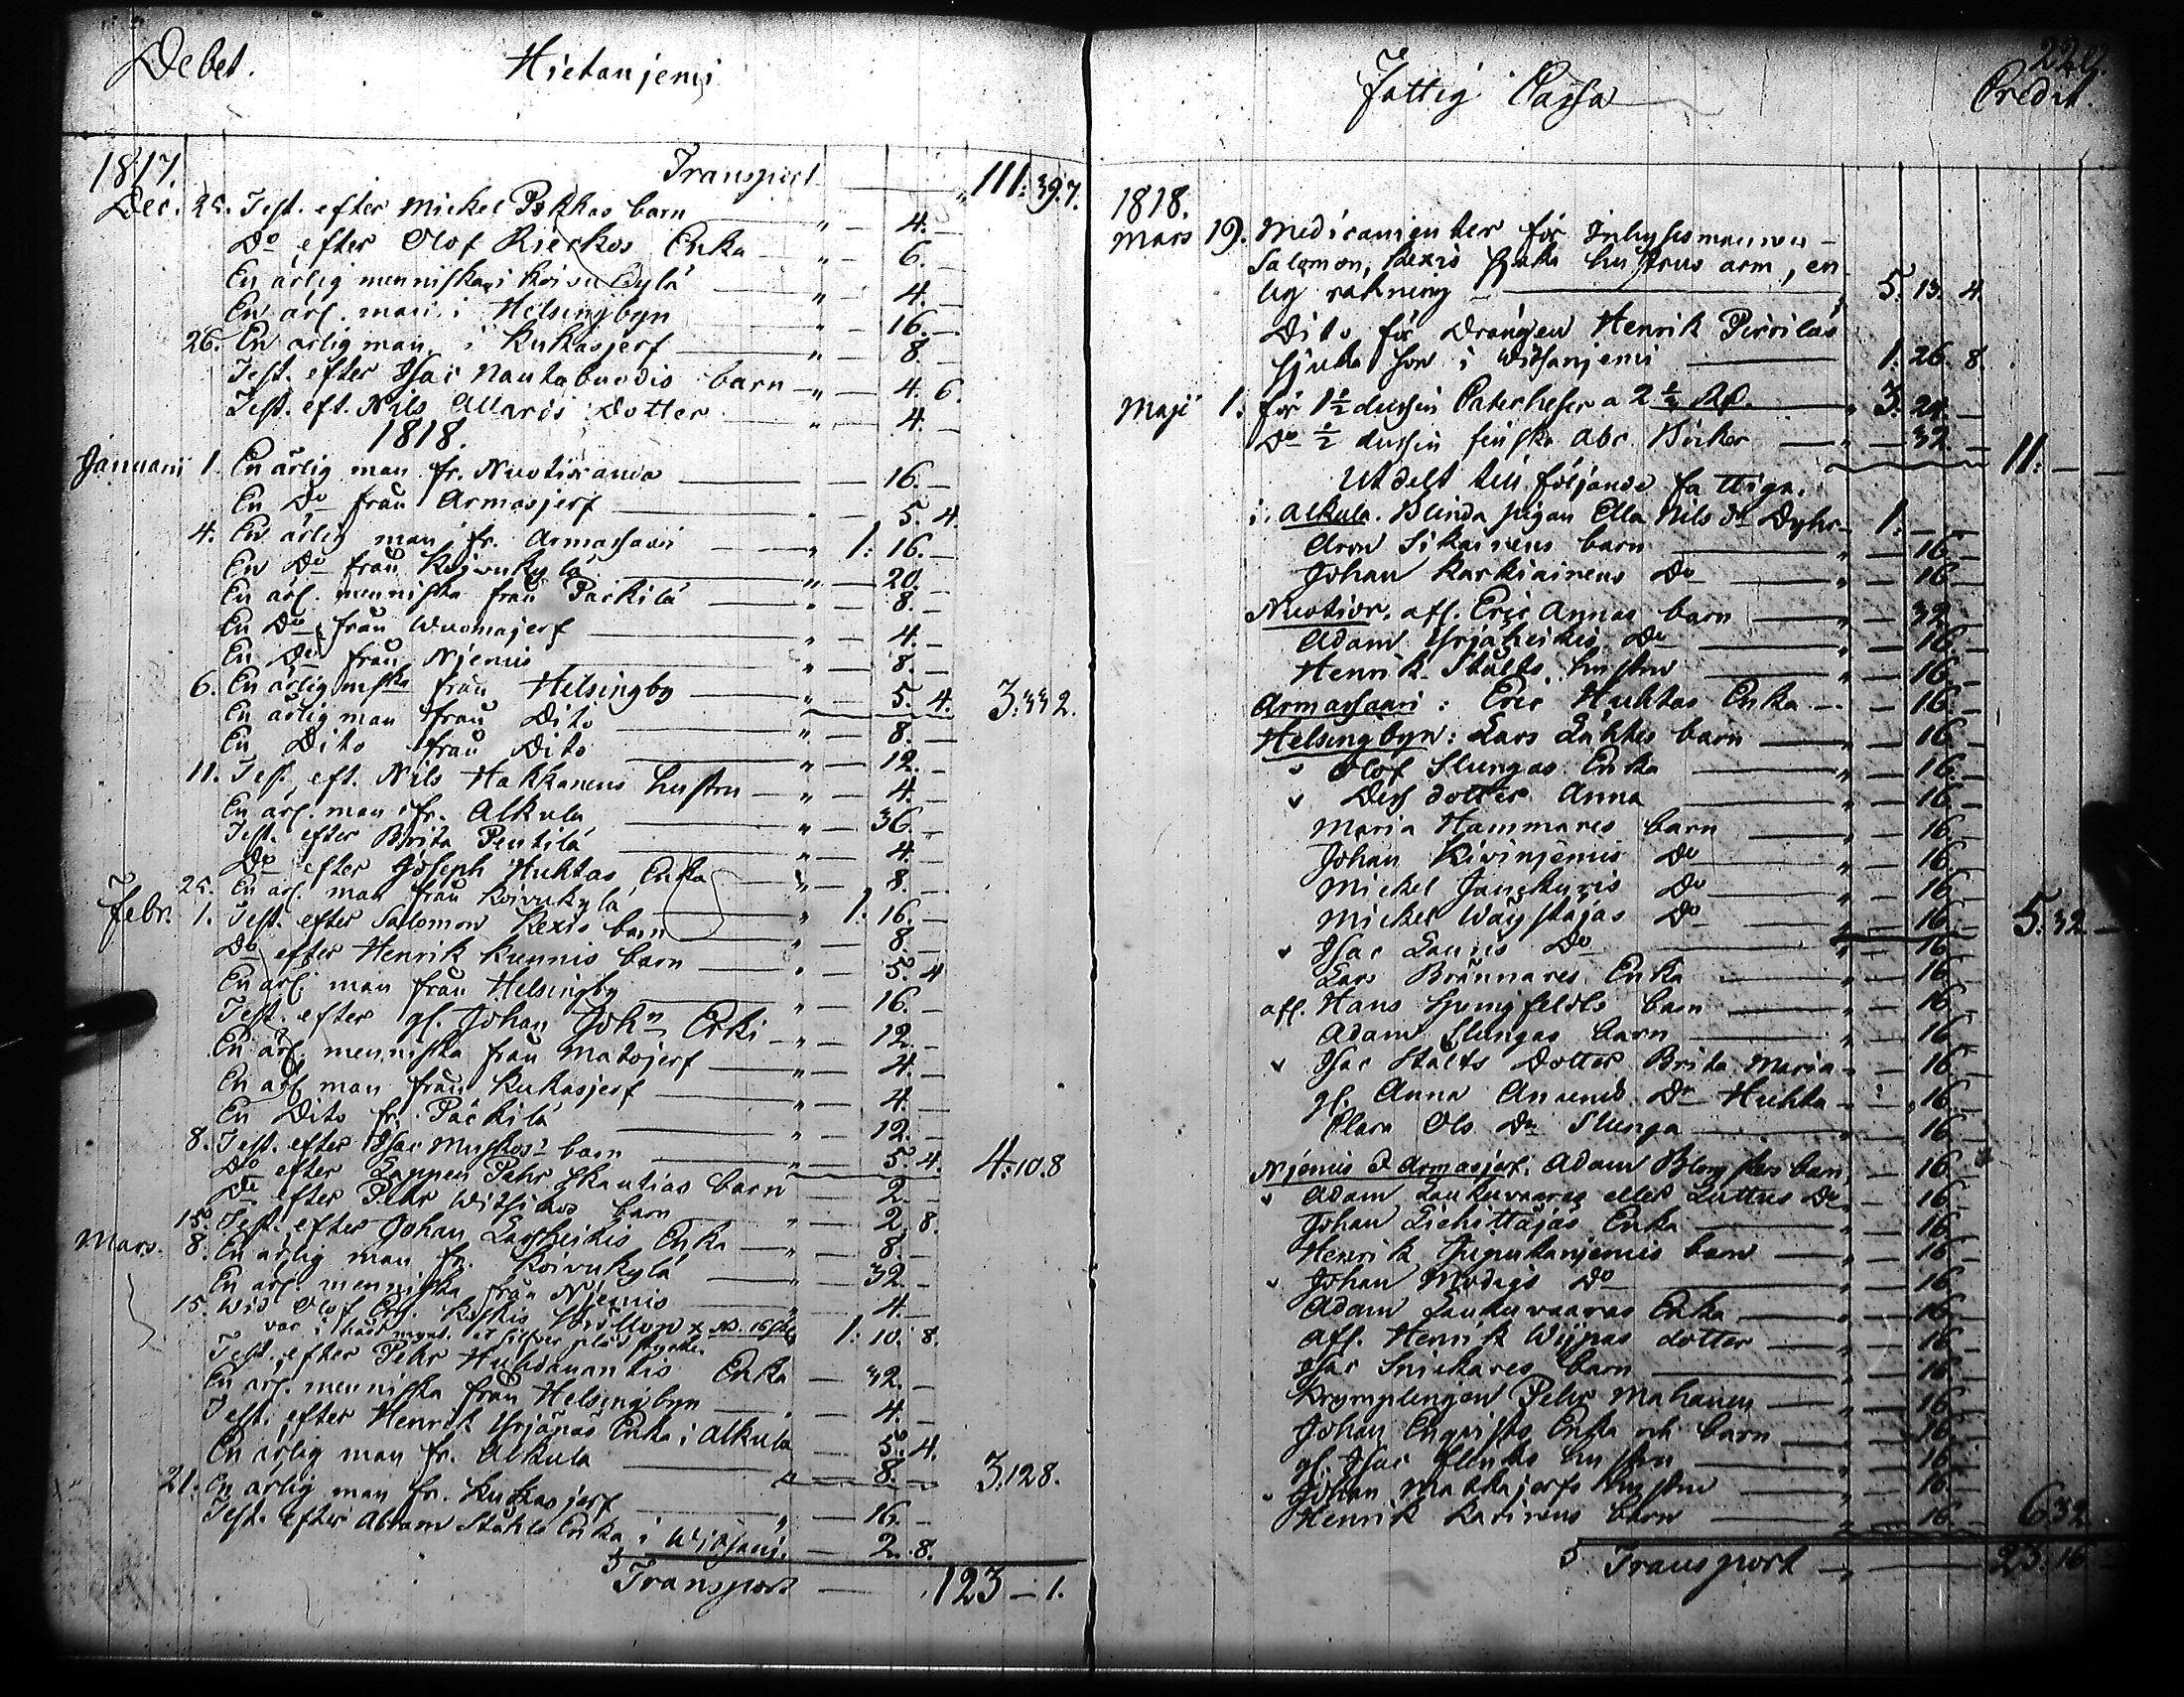 Debet. Hietanjemi
1817. Transport — " 111: 39. 7.
Dec. 25. Test. efter Mickel Pekkas barn " — 4. —
Do efter Olof Rieckos Enka — " — 6. —
En ärlig menniska i Koivukylä — " — 4. —
En ärl. man i Helsingbyn — " — 16. —
26. En ärlig man i Kukasjerf — " — 8. —
Test. efter Isac Nautabuodis barn — " — 4. 6.
Test. eft. Nils Allards Dotter " — 4. —
1818.
Januarii 1. En ärlig man fr. Nuotioranda — — 16. —
En Do från Armasjerf — " — 5. 4.
4. En ärlig man fr. Armassaari — " 1: 16. —
En Do från Koivukylä — " — 20. —
En ärl. menniska från Päckilä — " — 8. —
En Do från Wuomajerf — " — 4. —
En Do från Njemis — " — 8. —
6. En ärlig mska från Helsingby — " — 5. 4. 3: 33 2.
En ärlig man från Dito — " — 8. —
En Dito från Dito — " — 12. —
11. Test. eft. Nils Hakkanens hustru — " — 4. —
En ärl. man fr. Alkula — " — 36. —
Test. efter Brita Pentilä — " — 4. —
Do efter Joseph Huhtas Enka — " — 8. —
25. En ärl. man från Koivukylä — " 1: 16. —
Febr. 1. Test. efter Salomon Kexis barn — " — 8. —
Do efter Henrik Kunnis barn — " — 5. 4
En ärl. man från Helsingby — " — 16. —
Test. efter gl. Johan Johns Erki — " — 12. —
En ärl. menniska från Matojerf — " — 4. —
En ärl. man från Kukasjerf — " — 4. —
En Dito fr. Päckilä — " — 12. —
8. Test. efter Isac Muskos barn — " — 5. 4. 4: 10. 8
Do efter Lappen Pehr Skautias barn — 2. —
Do efter Pehr Witsikos barn " — 2. 8.
15. Test. efter Johan Larsheikis Enka — " — 8. —
Mars. 8. En ärlig man fr. Koivukylä — " — 32. —
En ärl. menniska från Njemis — " — 4. —
15. Wid Olof Bröllop 1: 10. 8.
var i
Test. efter Pehr Enka — 32. —
En ärl. menniska från Helsingbyn — " — 4. —
Test. efter Henrik Yrjänäs Enka i Alkula — 5. 4.
En ärlig man fr. Alkula — " — 8. — 3: 12 8.
21. En ärlig man fr. Kukasjerf — " — 16. —
Test. efter Abram Ståhls Enka i — 2. 8.
Transport — 123 — 1.
Fattig Cassa Credit.
1818.
Mars 19. Medicamenter för Inhyses
Salomon Kexis sjuka hustrus arm, en
lig räkning — 5. 13. 4.
Dito för Drängen Henrik Pirriläs
sjuka son i Witsanjemi — 1. 26. 8.
Maji 1. för 1 1/2 dussin Catecheser a 2 — " 3. 24. —
Do 1/2 dussin finska abc Böcker — " — 32. — 11: — —
Utdelt till följande fattiga.
i. Alkula. Blinda pigan Ella Nils dr Dyhr — 1. — —
Aron Sikainens barn — " — 16. —
Johan Karkiainens Do — " — 16 —
Nuotior. afl. Eric Annas barn — " — 32 —
Adam Yrjäheikis Do — " — 16 —
Henrik Stålts hustru — " — 16 —
Armassaari: Eric Huhtas Enka — " — 16 —
Helsingbyn: Lars Lahtis barn — " — 16 —
v Olof Slungas Enka — " — 16. —
v Dess dotter Anna — " — 16 —
Maria Hammares barn — " — 16 —
Johan Kivinjemis Do — " — 16 —
Mickel Do — " — 16 —
Mickel Do — " — 16 — 5: 32 —
v Isac Lauris Do — " — 16 —
Lars Brännares Enka — " — 16 —
afl. Hans barn — " — 16 —
Adam Slungas barn — " — 16 —
v Isac Stålts Dotter Brita Maria — " — 16 —
gl. Anna Anunds Dr Huhta — " — 16 —
Clara Ols Dr Slunga — " — 16 —
Njemis & Armasjerf. Adam barn — 16 —
v Adam Laukuvaaras eller Luttus Do — 16 —
Johan Enka — " — 16 —
Henrik barn — " — 16 —
v Johan Modigs Do — " — 16 —
Adam Laukuvaaras Enka — " — 16 —
afl. Henrik Wijpas dotter — " — 16 —
Isac Snickares barn — " — 16 —
Krymplingen Pehr Mahanen — " — 16 —
Johan Enqvists Enka och barn — " — 16 —
gl. Isac hustru — " — 16 —
Johan hustru — " — 16 —
Henrik barn — " — 16. — 6. 32
Transport — 23. 16